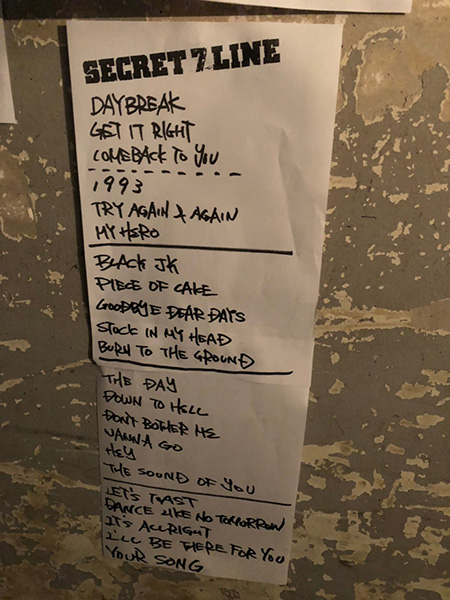 SECRET 7 LINE
DAYBREAK
GET IT RIGHT
COMEBACK TO YOU
1993
TRY AGAIN & AGAIN
MY HERO
BLACK JK
PIECE OF CAKE
GOODBYE DEAR DAYS
STUCK IN MY HEAD
BURN TO THE GROUND
THE DAY
DOWN TO HELL
DON'T BOTHER ME
WANNA GO
HEY
THE SOUND OF YOU
LET'S TOAST
DANCE LIKE NO TOMORROW
IT'S ALLRIGHT
I'LL BE THERE FOR YOU
YOUR SONG